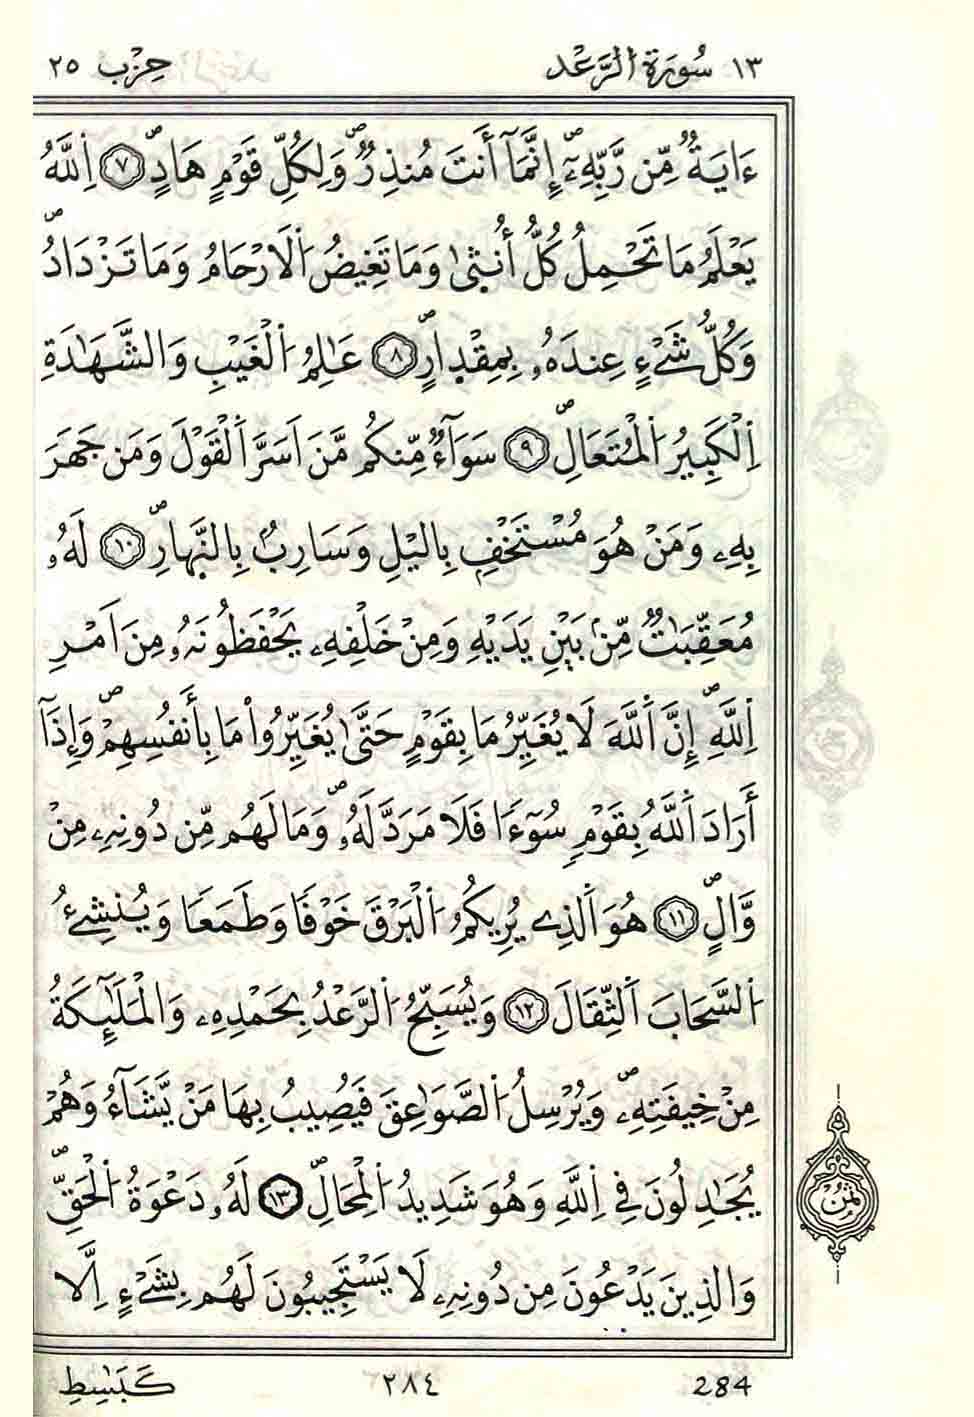 ١٣ سُورَةُ الرَّعْد حِزْب ٢٥
ءَايَةٌ مِّن رَّبِّهِۦٓ إِنَّمَآ أَنتَ مُنذِرٌ وَلِكُلِّ قَوْمٍ هَادٍ ٧ اَللَّهُ
يَعْلَمُ مَا تَحْمِلُ كُلُّ أُنثىٰ وَمَا تَغِيضُ اُلَارْحَامُ وَمَا تَزْدَادُ
وَكُلُّ شَےْءٍ عِندَهُۥ بِمِقْدارٍ ٨ عَٰلِمُ اُلْغَيْبِ وَالشَّهَٰدَةِ
اِلْكَبِيرُ اُلْمُتَعَالِ ٩ سَوَآءٌ مِّنكُم مَّنَ اَسَرَّ اَلْقَوْلَ وَمَن جَهَرَ
بِهِۦ وَمَنْ هُوَ مُسْتَخْفِۢ بِاليْلِ وَسَارِبُۢ بِالنَّهارِ ١٠ لَهُۥ
مُعَقِّبَٰتٌ مِّنۢ بَيْنِ يَدَيْهِ وَمِنْ خَلْفِهِۦ يَحْفَظُونَهُۥ مِنَ اَمْرِ
اِللَّهِ إِنَّ اَللَّهَ لَا يُغَيِّرُ مَا بِقَوْمٍ حَتَّىٰ يُغَيِّرُواْ مَا بِأَنفُسِهِمْ وَإِذَآ
أَرَادَ اَللَّهُ بِقَوْمٍ سُوٓءٗا فَلَا مَرَدَّ لَهُۥ وَمَا لَهُم مِّن دُونِهِۦ مِنْ
وَّالٍ ١١ هُوَ اَلذِے يُرِيكُمُ اُلْبَرْقَ خَوْفٗا وَطَمَعٗا وَيُنشِئُ
اُلسَّحَابَ اَلثِّقَالَ ١٢ وَيُسَبِّحُ اُلرَّعْدُ بِحَمْدِهِۦ وَالْمَلَٰٓئِكَةُ
مِنْ خِيفَتِهِۦ وَيُرْسِلُ اُلصَّوَٰعِقَ فَيُصِيبُ بِهَا مَنْ يَّشَآءُ وَهُمْ
يُجَٰدِلُونَ فِے اِللَّهِ وَهُوَ شَدِيدُ اُلْمِحَالِ ١٣ لَهُۥ دَعْوَةُ اُلْحَقِّ
وَالذِينَ يَدْعُونَ مِن دُونِهِۦ لَا يَسْتَجِيبُونَ لَهُم بِشَےْءٍ اِلَّا
ثُمُن
كَبَٰسِطِ ٢٨٤ 284